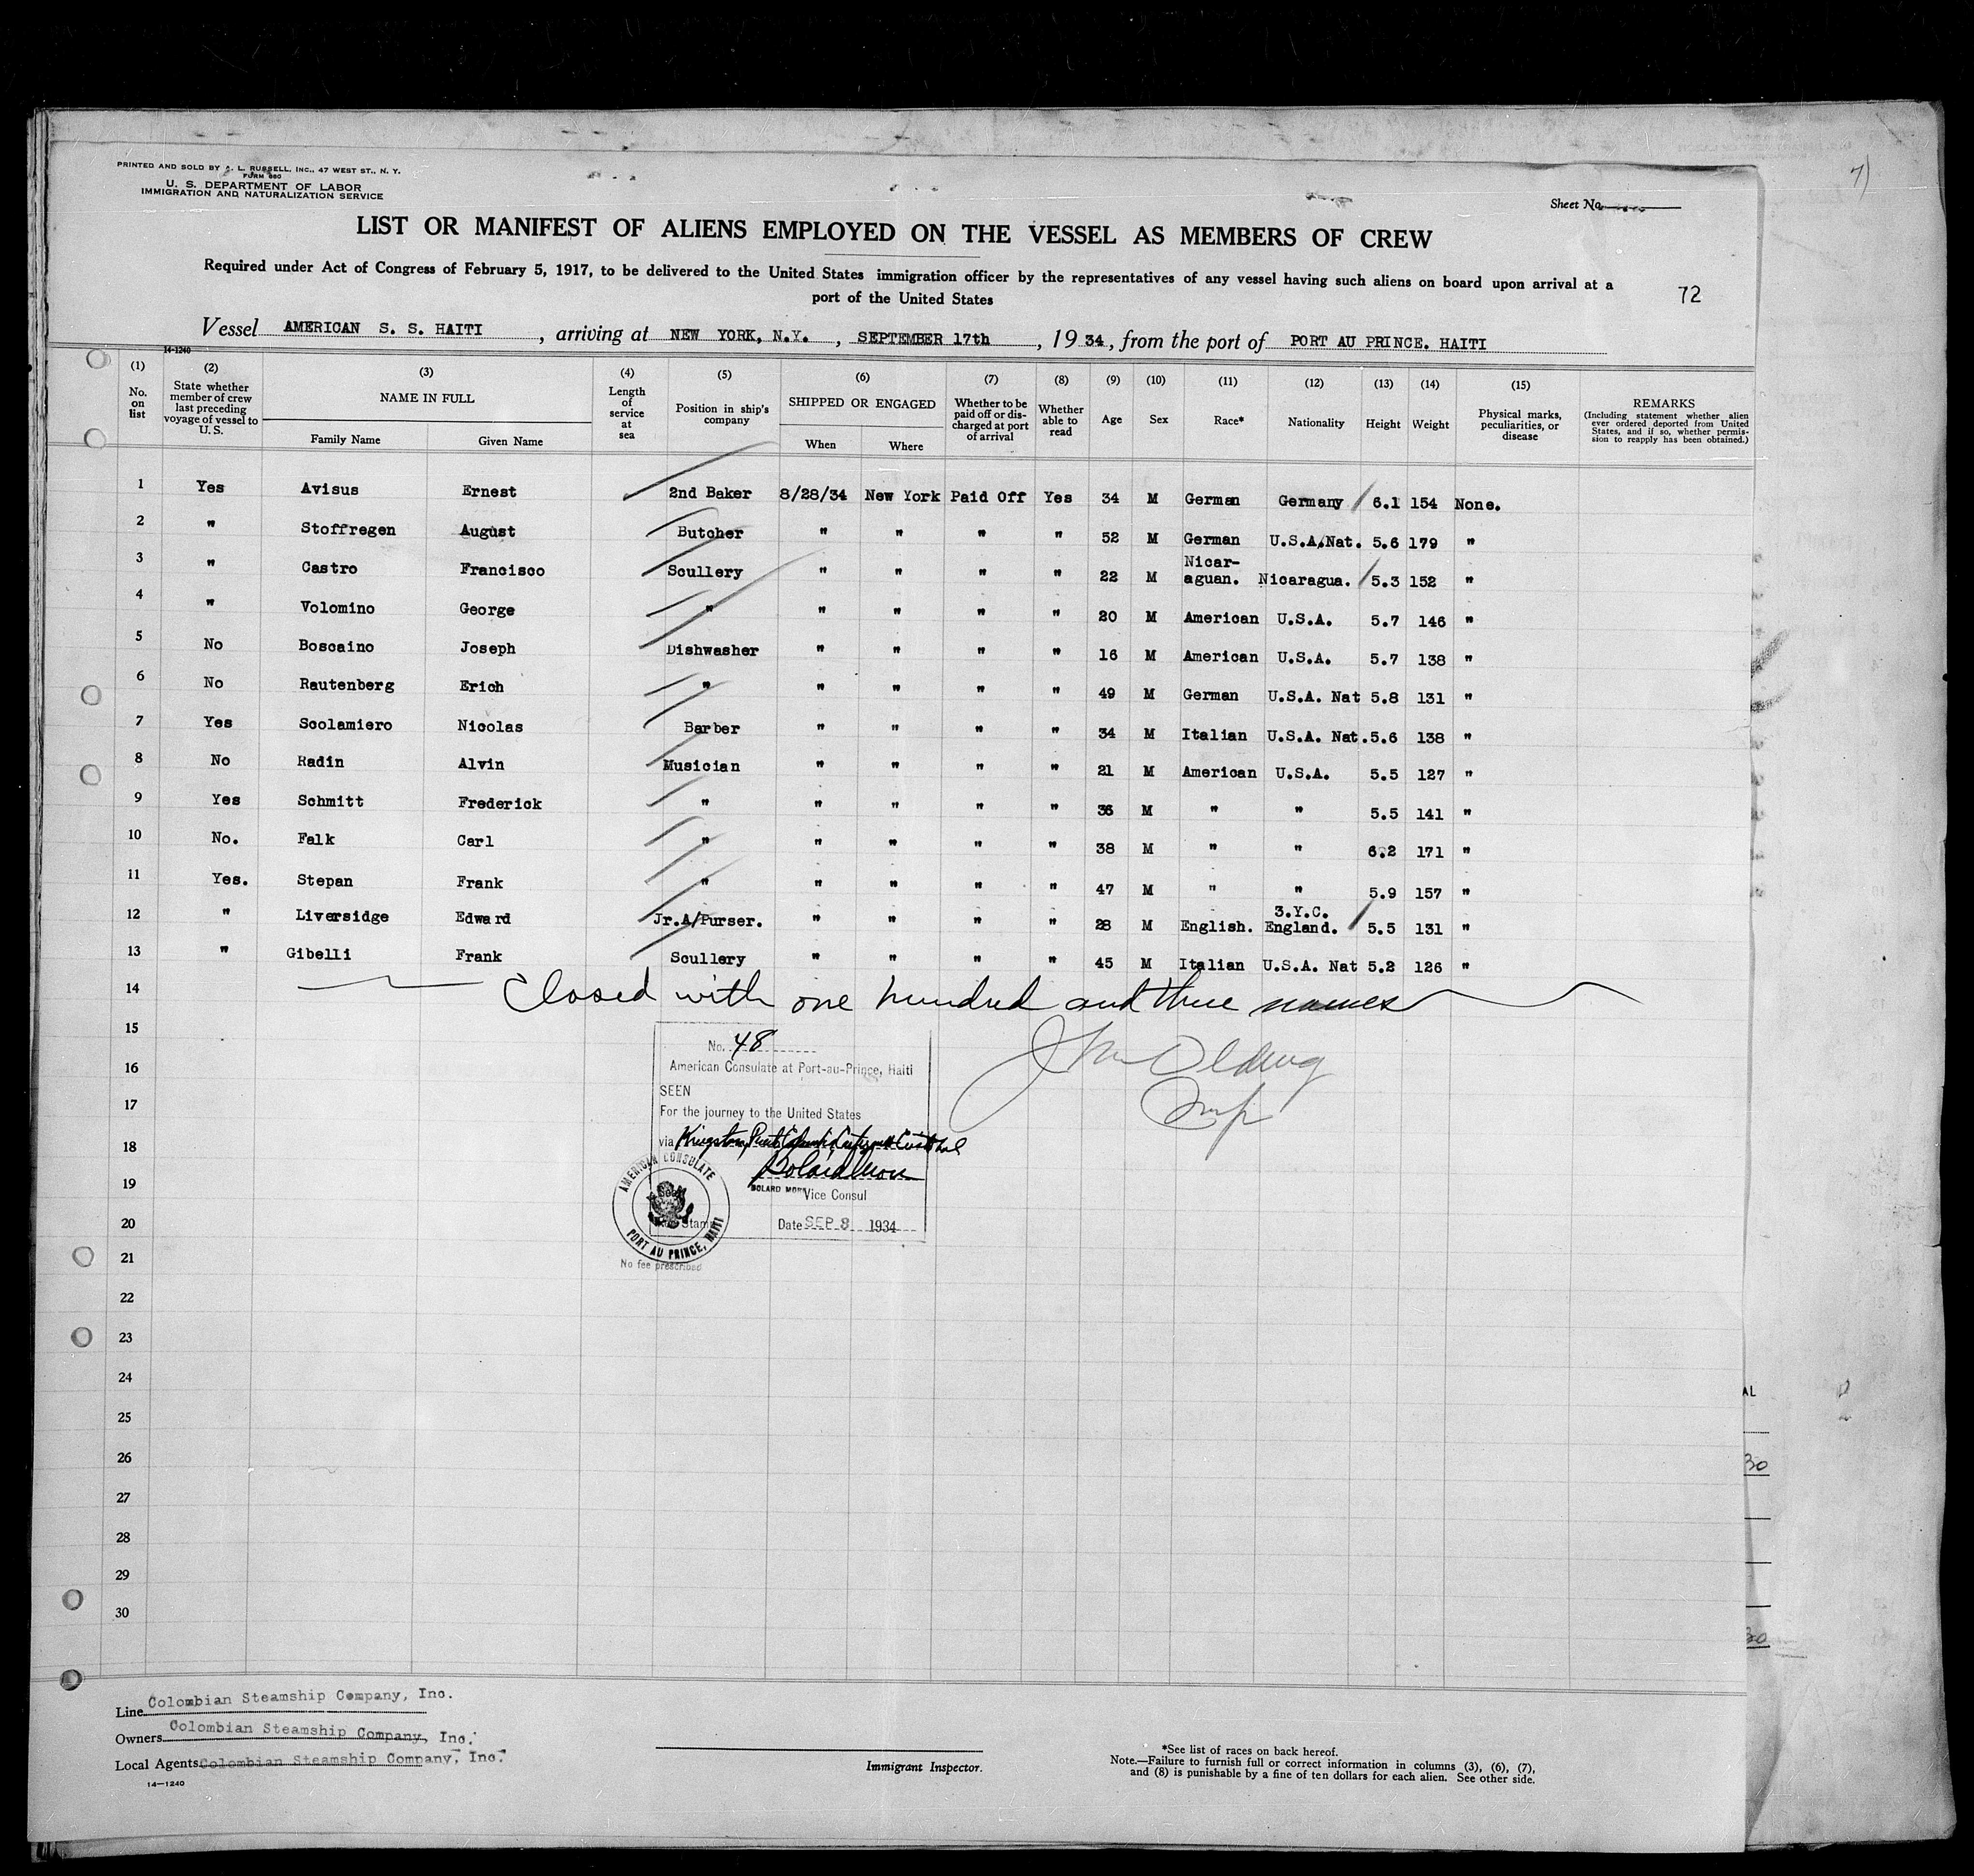 PRINTED AND SOLD BY A. L. RUSSELL, INC., 47 WEST ST., N. Y.
FORM 680
U. S. DEPARTMENT OF LABOR
IMMIGRATION AND NATURALIZATION SERVICE
Sheet No.
LIST OR MANIFEST OF ALIENS EMPLOYED ON THE VESSEL AS MEMBERS OF CREW
Required under Act of Congress of February 5, 1917, to be delivered to the United States immigration officer by the representatives of any vessel having such aliens on board upon arrival at a
port of the United States
72
Vessel AMERICAN S. S. HAITI, arriving at NEW YORK, N.Y., SEPTEMBER 17th, 1934, from the port of PORT AU PRINCE. HAITI
14-1240
(1) No. on list (2) State whether member of crew last preceding voyage of vessel to U. S. (3) NAME IN FULL Family Name Given Name (4) Length of service at sea (5) Position in ship's company (6) SHIPPED OR ENGAGED When Where (7) Whether to be paid off or discharged at port of arrival (8) Whether able to read (9) Age (10) Sex (11) Race* (12) Nationality (13) Height (14) Weight (15) Physical marks, peculiarities, or disease REMARKS (Including statement whether alien ever ordered deported from United States, and if so, whether permission to reapply has been obtained.)
1 Yes Avisus Ernest 2nd Baker 8/28/34 New York Paid Off Yes 34 M German Germany 6.1 154 None.
2 " Stoffregen August Butcher " " " " 52 M German U.S.A.Nat. 5.6 179 "
3 " Castro Francisco Scullery " " " " 22 M Nicar-aguan. Nicaragua. 5.3 152 "
4 " Volomino George " " " " " 20 M American U.S.A. 5.7 146 "
5 No Boscaino Joseph Dishwasher " " " " 16 M American U.S.A. 5.7 138 "
6 No Rautenberg Erich " " " " " 49 M German U.S.A. Nat 5.8 131 "
7 Yes Scolamiero Nicolas Barber " " " " 34 M Italian U.S.A. Nat. 5.6 138 "
8 No Radin Alvin Musician " " " " 21 M American U.S.A. 5.5 127 "
9 Yes Schmitt Frederick " " " " " 36 M " " 5.5 141 "
10 No. Falk Carl " " " " " 38 M " " 6.2 171 "
11 Yes. Stepan Frank " " " " " 47 M " " 5.9 157 "
12 " Liversidge Edward Jr.A/Purser. " " " " 28 M English. 3.Y.C. England. 5.5 131 "
13 " Gibelli Frank Scullery " " " " 45 M Italian U.S.A. Nat 5.2 126 "
14 Closed with one hundred and three names
15
16
17
18
19
20
21
22
23
24
25
26
27
28
29
30
No. 48
American Consulate at Port-au-Prince, Haiti
SEEN
For the journey to the United States
via Kingston,
BOLARD MORE
Vice Consul
Date SEP 8 1934
AMERICAN CONSULATE
PORT AU PRINCE, HAITI
No fee prescribed
Line Colombian Steamship Company, Inc.
Owners Colombian Steamship Company, Inc.
Local Agents Colombian Steamship Company, Inc.
14—1240
Immigrant Inspector.
*See list of races on back hereof.
Note.—Failure to furnish full or correct information in columns (3), (6), (7),
and (8) is punishable by a fine of ten dollars for each alien. See other side.
AL
30
30